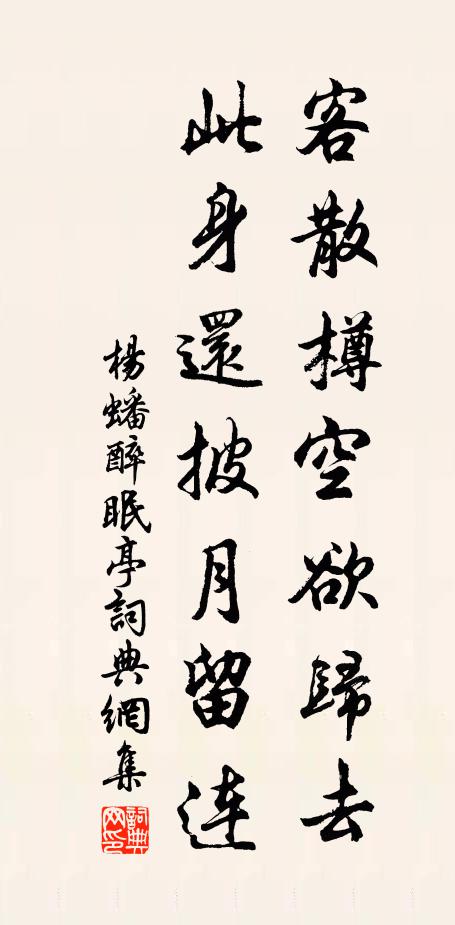 客散樽空欲歸去
此身還披月留連
楊蟠醉眠亭詞典網集
詞典网印